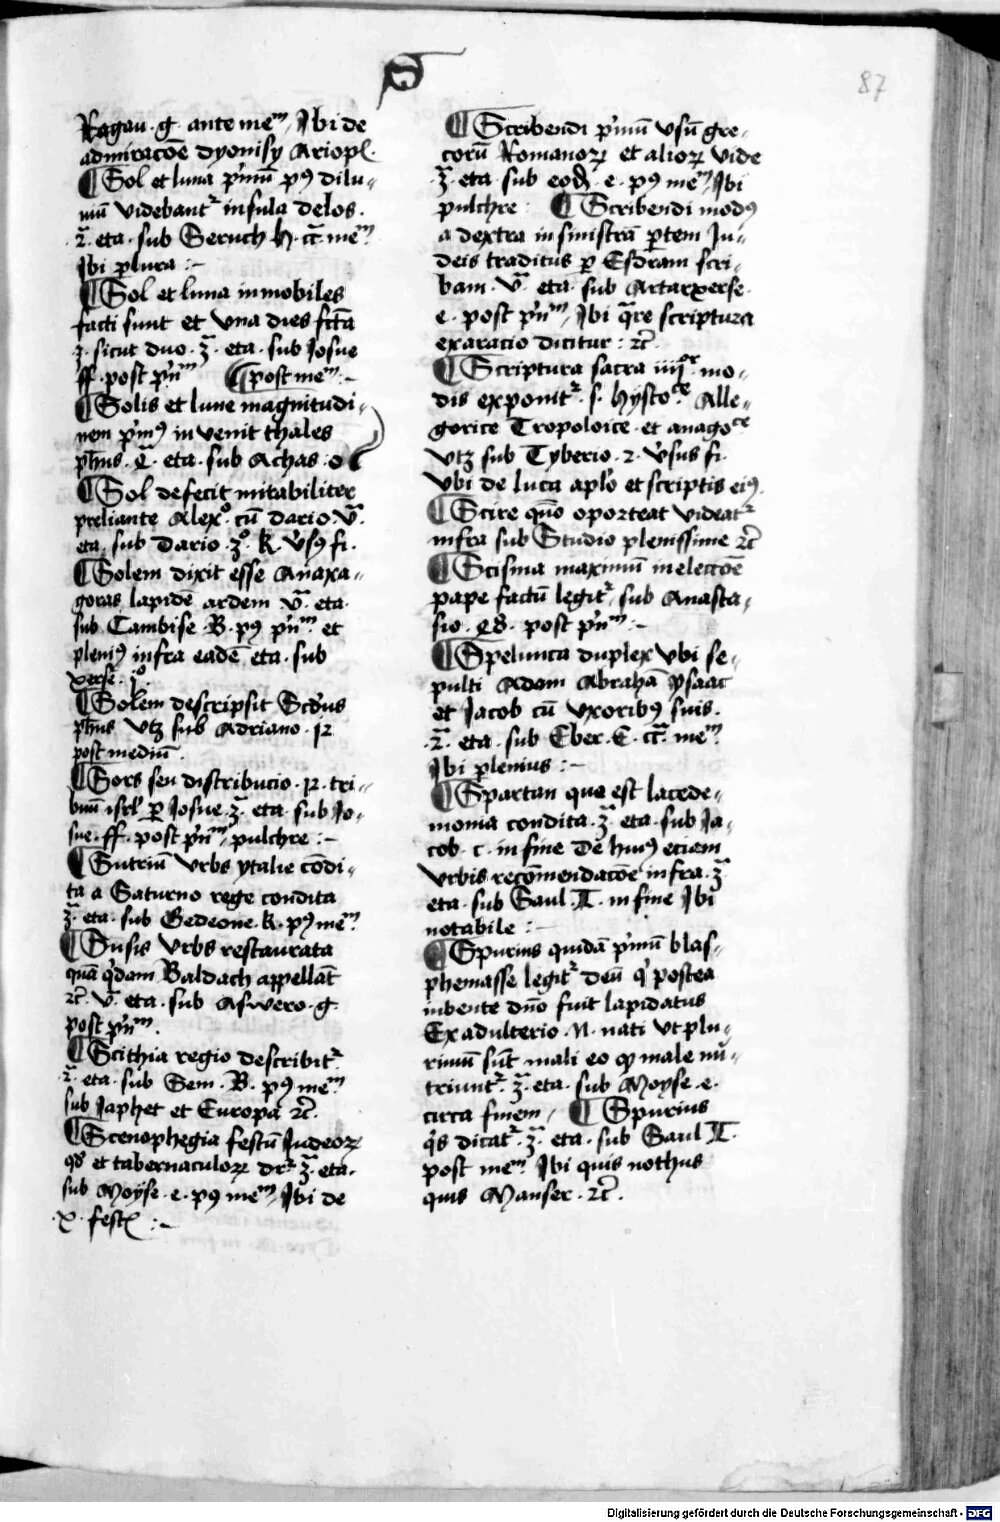 S
87
Ragau · g · ante meᵐ / Ibi de
admiracōe dyonisy Ariopl·
¶ Sol et luna p'mū pꝰ dilu-
uiū videbantʳ insula delos ·
2ᵃ eta · sub Seruch h · c̄c meᵐ
Ibi plura :-
¶ Sol et luna inmobiles
facti sunt et vna dies fcta
ē · sicut duo · 3ᵃ eta · sub Iosue
ff · post p'nᵐ ¶ post meᵐ :-
¶ Solis et lune magnitudi-
nem p'mꝰ invenit thales
ph'us · 4ᵃ eta · sub Achas :
¶ Sol defecit mirabiliter
preliante Alexº cū dario vᵃ
eta · sub dario · 3º k · v'sꝰ fi ·
¶ Solem dixit esse Anaxa-
goras lapidē ardem vᵃ eta ·
sub Cambise · B · pꝰ p'nᵐ et
pleniꝰ infra eadē eta · sub
xerse · iº
¶ Solem descripsit Scd'us
ph'us vtz sub Adriano · 12
post mediū ·
¶ Sors seu distribucio · 12 · tri-
buū isrl' ꝑ Iosue · 3ᵃ eta · sub Io-
sue · ff · post p'nᵐ / pulchre :-
¶ Sutriū vrbs ytalie cōdi-
ta a Saturno rege condita
3ᵃ eta · sub Gedeone · k · pꝰ meᵐ
¶ Susis vrbs restaurata
quā q'dam Baldach appellāt
ꝛc · vᵃ eta · sub Aswero · g ·
post p'nᵐ ·
¶ Scithia regio describitʳ
2ᵃ eta · sub Sem · B · pꝰ meᵐ
sub Iaphet et Europa ꝛc ·
¶ Scenophegia festū Iudeoꝝ
qd' et tabernaculoꝝ drʳ 3ᵃ eta ·
sub Moyse · e · pꝰ meᵐ / Ibi de
· x · fest' :-
¶ Scribendi p'mū vsū gre-
corū Romanoꝝ et alioꝝ vide
3ᵃ eta sub eod' · e · pꝰ meᵐ / Ibi
pulchre : ¶ Scribendi modꝰ
a dextra in sinistrā ꝑtem Iu-
deis traditus ꝑ Esdram scri-
bam · vᵃ eta sub Artarxerse ·
e · post p'nᵐ / Ibi qᵃre scriptura
exaracio dicitur : ꝛc
¶ Scriptura sacra iiijᵒʳ mo-
dis exponitʳ · s · hystoᶜᵉ Alle-
gorice Tropoloice · et anagoᶜᵉ
vtz sub Tyberio · 2 · v'sus fi ·
vbi de luca aplo et scriptis eiꝰ
¶ Scire quō oporteat videatʳ
infra sub Studio plenissime ꝛc
¶ Scisma maximū in elecc̄oe
pape factū legitʳ / sub Anasta-
sio · 48 · post p'nᵐ :-
¶ Spelunca duplex vbi se-
pulti Adam Abrahā ysaac
et Iacob cū vxoribꝰ suis ·
2ᵃ eta · sub Eber · E · c̄c meᵐ
Ibi plenius :-
¶ Spartan que est lacede-
monia condita · 3ᵃ eta · sub Ia-
cob · c · in fine De huiꝰ eciam
vrbis recōmendacōe infra · 3ᵃ
eta · sub Saul · I · in fine Ibi
notabile :-
¶ Spurius quidā p'mū blas-
phemasse legitʳ deū q' postea
iubente dn̄o fuit lapidatus
Ex adulterio · N · nati vt plu-
rimū sūt mali eo ꝙ male nu-
triuntʳ · 3ᵃ eta · sub Moyse · e ·
circa finem / ¶ Spurius
q's dicatʳ · 3ᵃ eta · sub Saul I ·
post meᵐ Ibi quis nothus
quis Manser · ꝛc ·
Digitalisierung gefördert durch die Deutsche Forschungsgemeinschaft - DFG